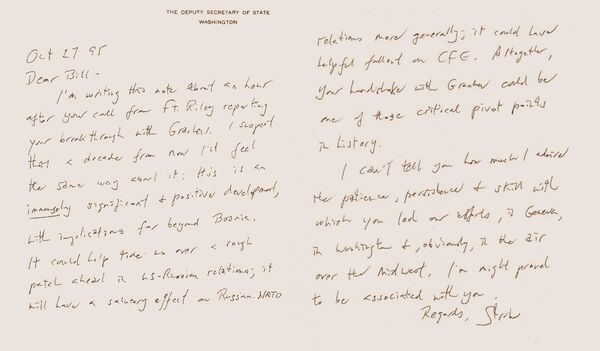 THE DEPUTY SECRETARY OF STATE
WASHINGTON
Oct 27 95
Dear Bill -
I'm writing this note about an hour
after your call from Ft. Riley reporting
your breakthrough with Grachev. I suspect
that a decade from now I'll feel
the same way about it: this is an
immensely significant & positive development,
with implications far beyond Bosnia.
It could help tide us over a rough
patch ahead in US-Russian relations; it
will have a salutary effect on Russian-NATO
relations more generally; it could have
helpful fallout on CFE. Altogether,
your handshake with Grachev could be
one of those critical pivot points
in history.
I can't tell you how much I admire
the patience, persistence & skill with
which you led our efforts, in Geneva,
in Washington &, obviously, in the air
over the Midwest. I'm might proud
to be associated with you.
Regards, Strobe